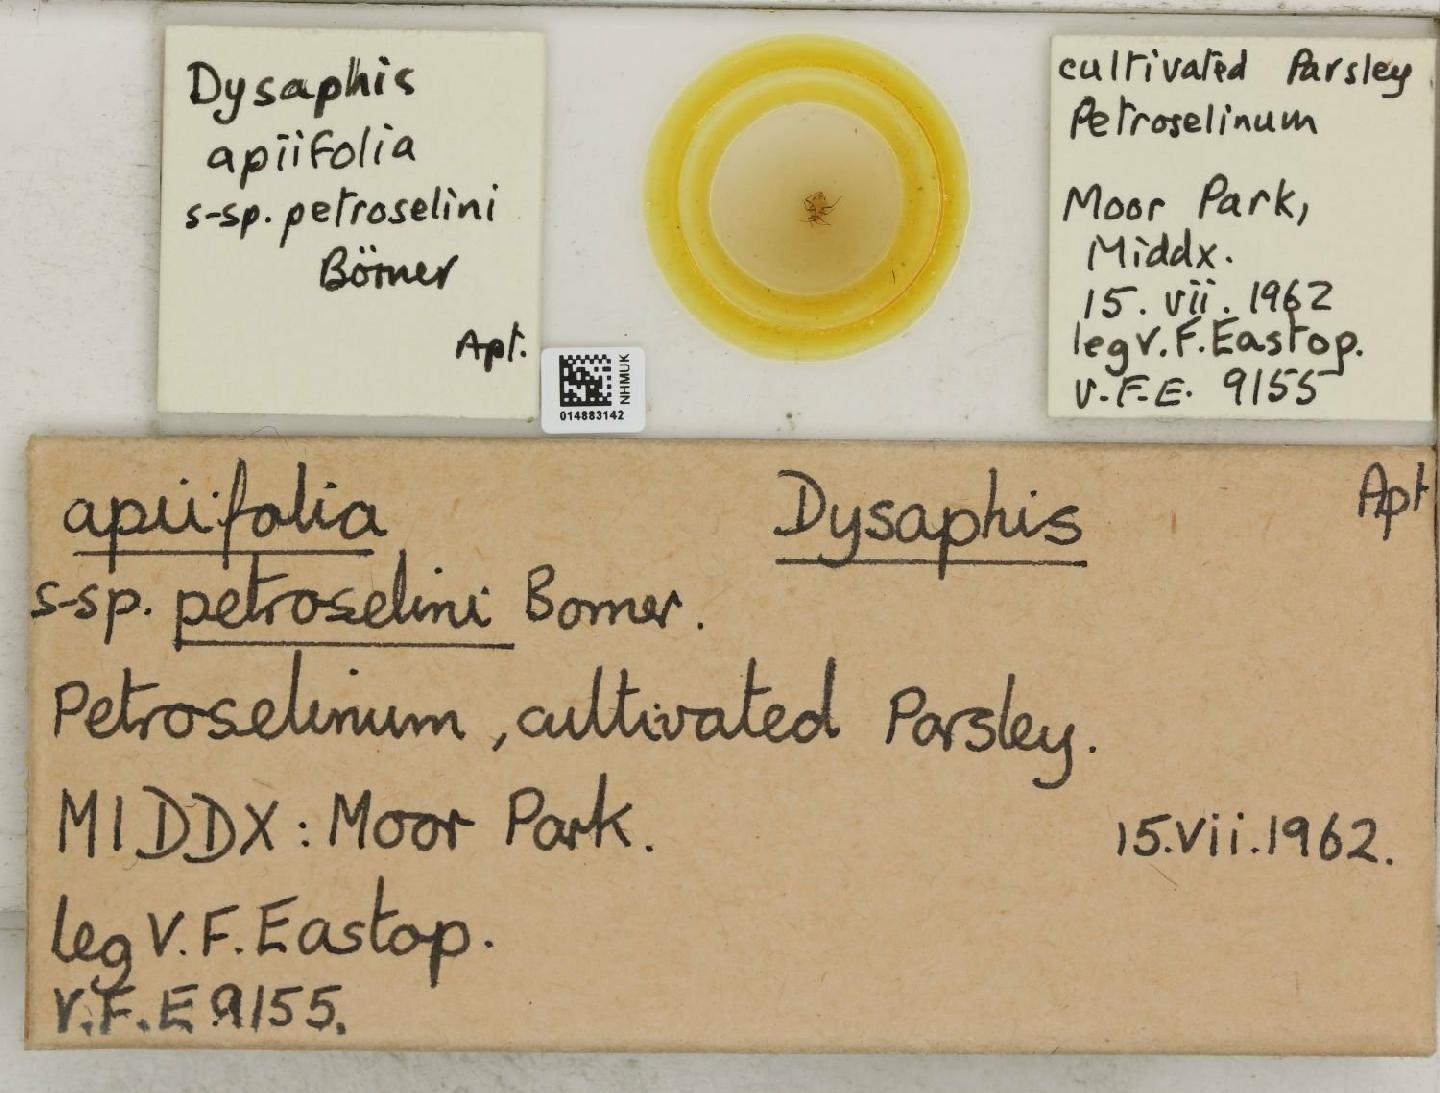 Dysaphis
apiifolia
s-sp. petroselini
Börner
Apt.
NHMUK
014883142
cultivated Parsley
Petroselinum
Moor Park,
Middx.
15. vii. 1962
leg V. F. Eastop.
V.F.E. 9155
apiifolia Dysaphis Apt
s-sp. petroselini Borner.
Petroselinum, cultivated Parsley.
MIDDX: Moor Park. 15.vii.1962.
leg V. F. Eastop.
V.F.E 9155.